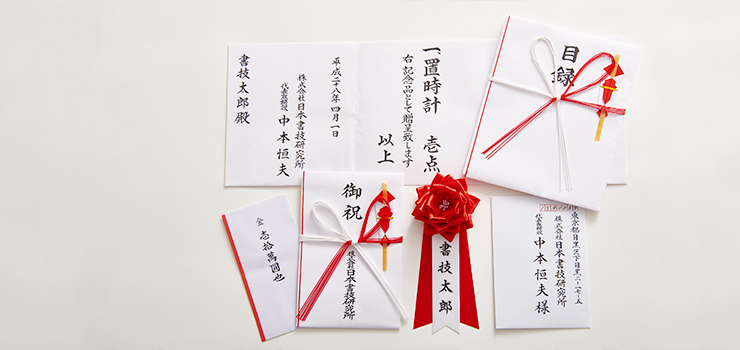 目録
一、置時計 壱点
右記念品として贈呈致します
以上
平成二八年四月一日
株式会社日本書技研究所
代表取締役 中本恒夫
書技太郎殿
御祝
株式会社日本書技研究所
書技太郎
金 壱拾萬圓也
東京都目黒区下目黒二-一七-五
株式会社日本書技研究所
代表取締役
中本恒夫様